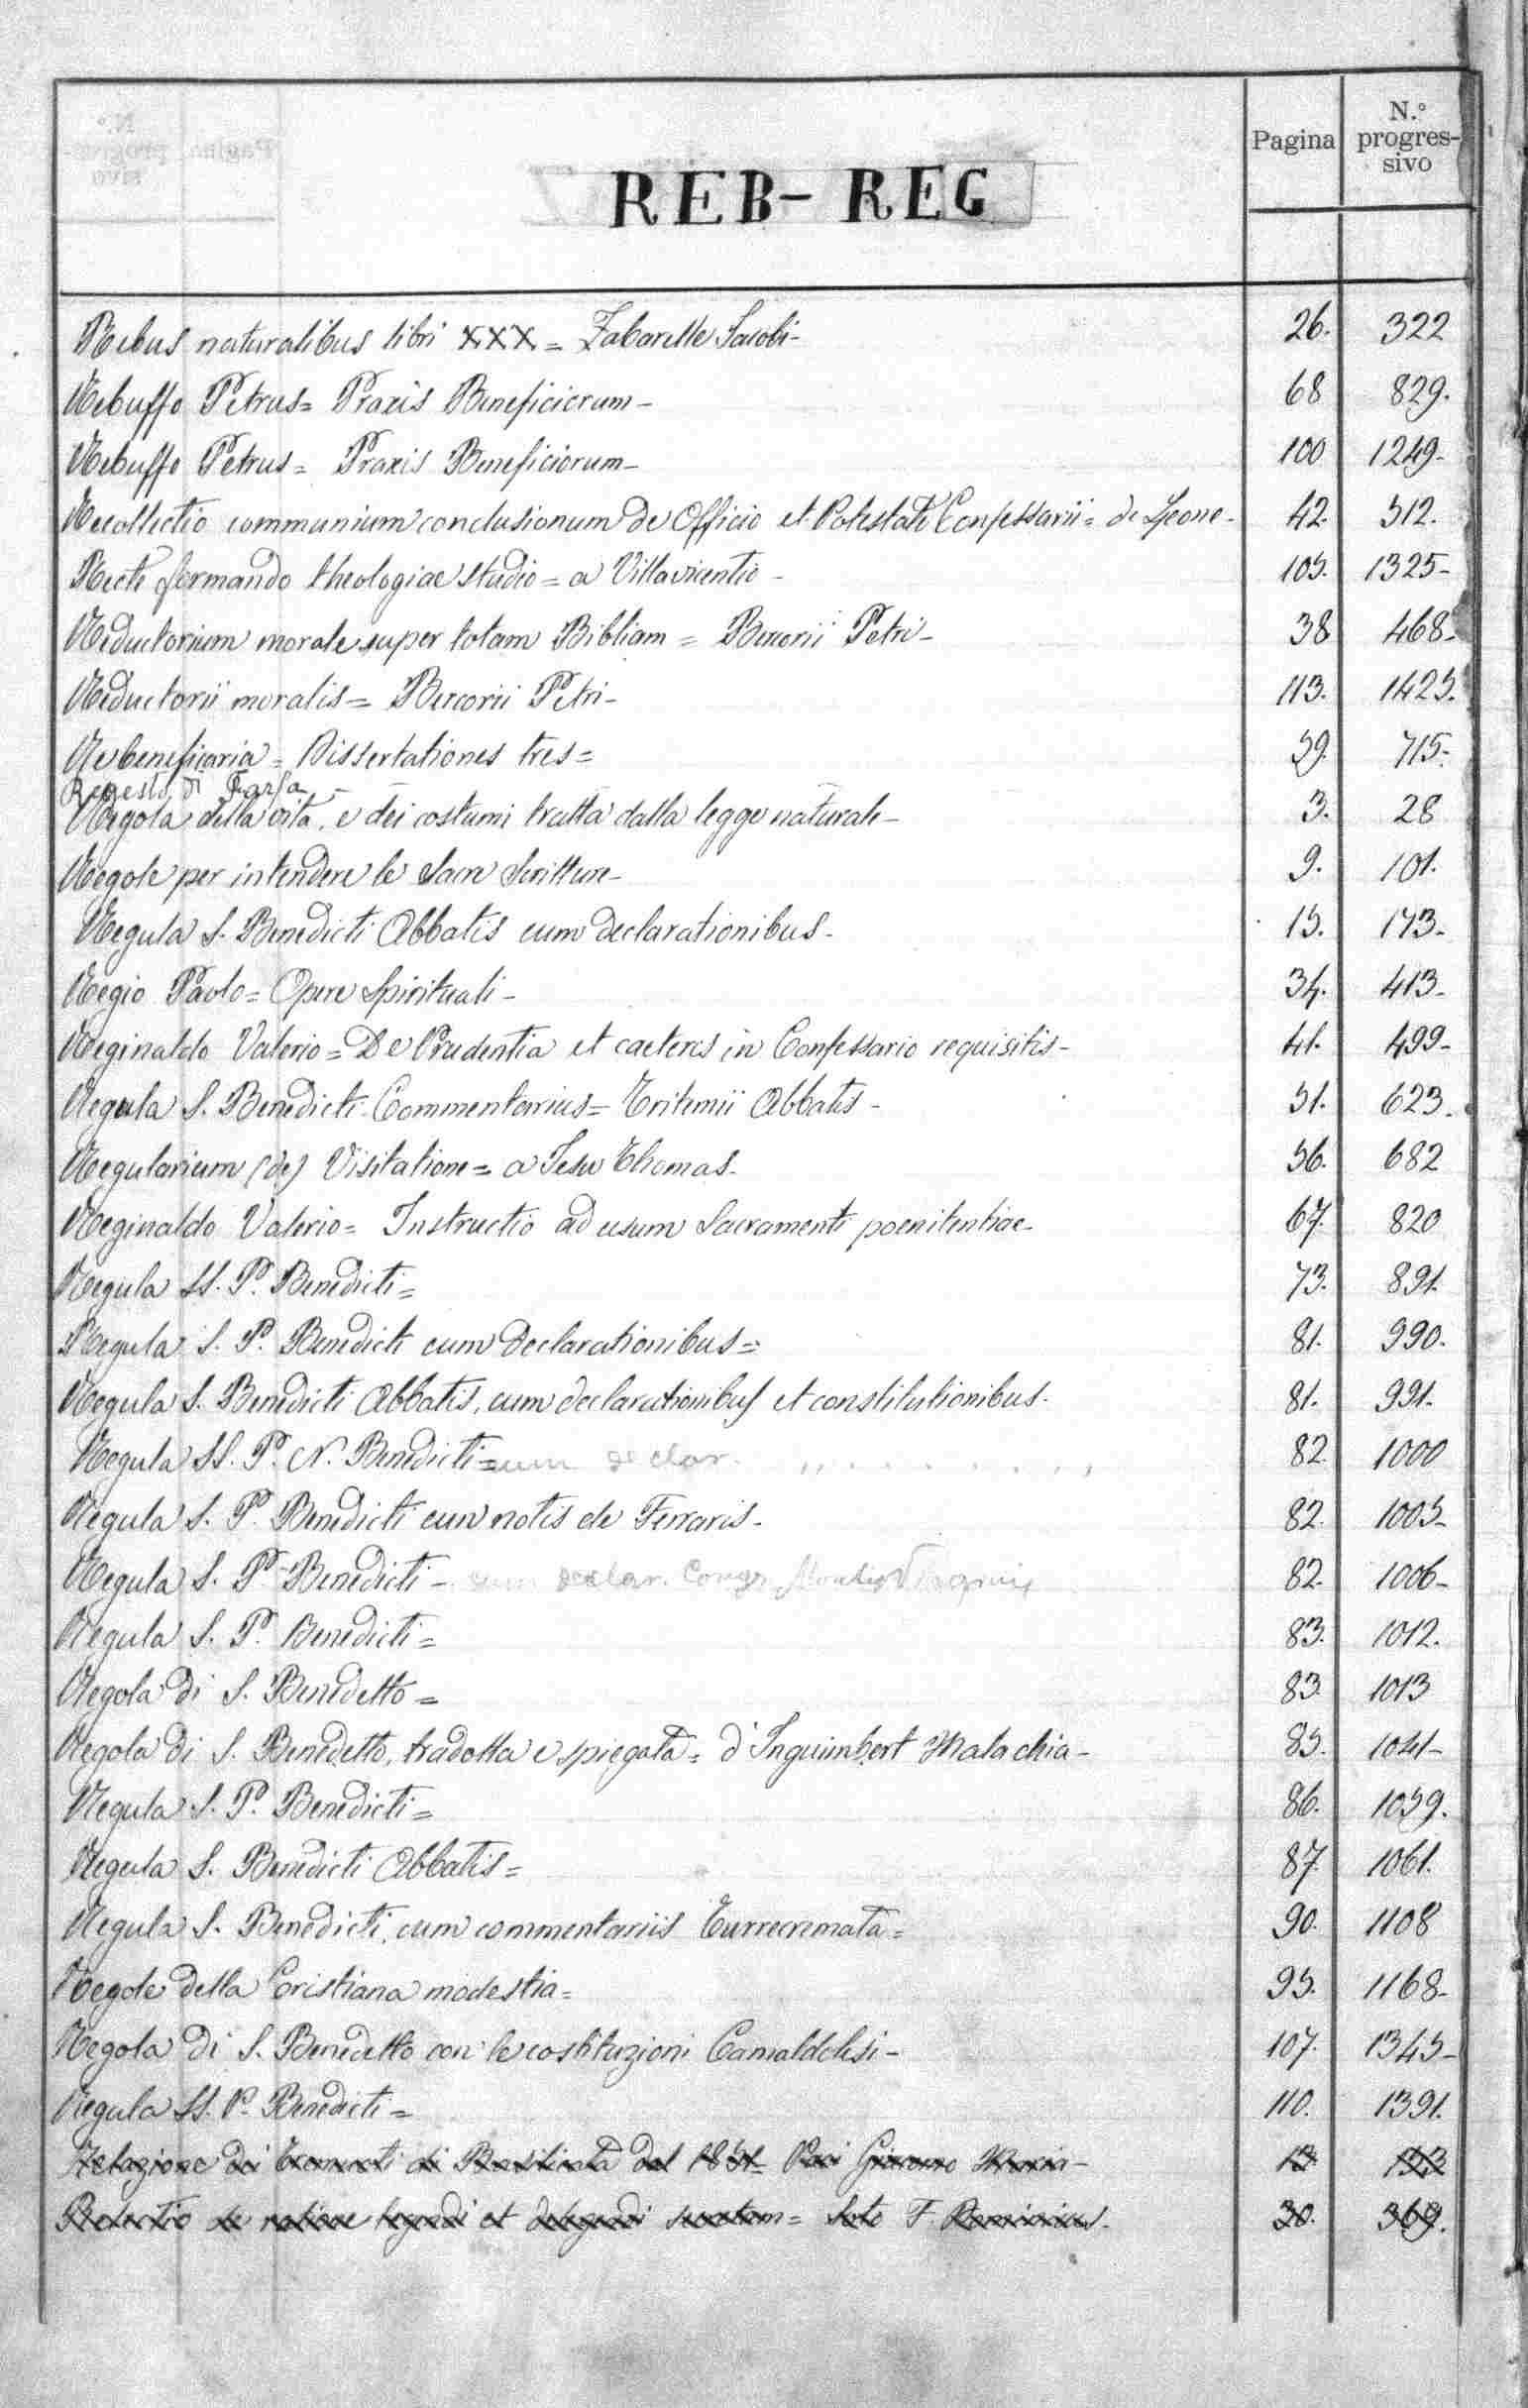 Pagina
N.° progres-
sivo
REB - REG
Rebus naturalibus libri XXX = Zabarelle Jacobi - 26. 322
Rebuffo Petrus = Praxis Beneficiorum - 68 829.
Rebuffo Petrus = Praxis Beneficiorum - 100 1249-
Recollectio communium conclusionum de Officio et Potestate Confessarii = de Leone - 42. 512.
Recte formando theologiae studio = a Villavicentio - 105. 1325-
Reductorium morale super totam Bibliam = Bercorii Petri - 38 468-
Reductorii moralis = Bercorii Petri - 113. 1425.
Re beneficaria = Dissertationes tres = 59. 715-
Regesto di Farfa - - -
Regola della vita, e dei costumi tratta dalla legge naturale - 3. 28
Regole per intendere le Sacre Scritture - 9. 101.
Regula S. Benedicti Abbatis cum declarationibus - 15. 173-
Regio Paolo = Opere Spirituali - 34. 413-
Reginaldo Valerio = De Prudentia et caeteris in Confessario requisitis - 41. 499-
Regula S. Benedicti Commentarius = Tritemii Abbatis - 51. 623.
Regularium (de) Visitatione = a Jesu Thomas. 56. 682
Reginaldo Valerio = Instructio ad usum Sacramenti poenitentiae - 67. 820
Regula SS. P. Benedicti = 73. 891.
Regula S. P. Benedicti cum declarationibus = 81. 990.
Regula S. Benedicti Abbatis, cum declarationibus et constitutionibus. 81. 991.
Regula SS. P. N. Benedicti = cum declar. 82. 1000
Regula S. P. Benedicti cum notis de Ferraris - 82. 1005-
Regula S. P. Benedicti - cum declar. Congr. Montis Virginis 82. 1006-
Regula S. P. Benedicti = 83. 1012.
Regola di S. Benedetto = 83. 1013
Regola di S. Benedetto, tradotta e spiegata = d'Inguimbert Malachia - 85. 1041-
Regula S. P. Benedicti = 86. 1059.
Regula S. Benedicti Abbatis = 87. 1061.
Regula S. Benedicti, cum commentariis Turrecremata = 90. 1108
Regole della Cristiana modestia = 95. 1168-
Regola di S. Benedetto con le costituzioni Camaldolesi - 107. 1345-
Regula SS. P. Benedicti = 110. 1391.
Relazione dei Tremuoti di Basilicata del 1851 = Paci Giacomo Maria - 13
Relectio de ratione tegendi et detegendi secretum = Soto F. Dominicus. 30. 369.